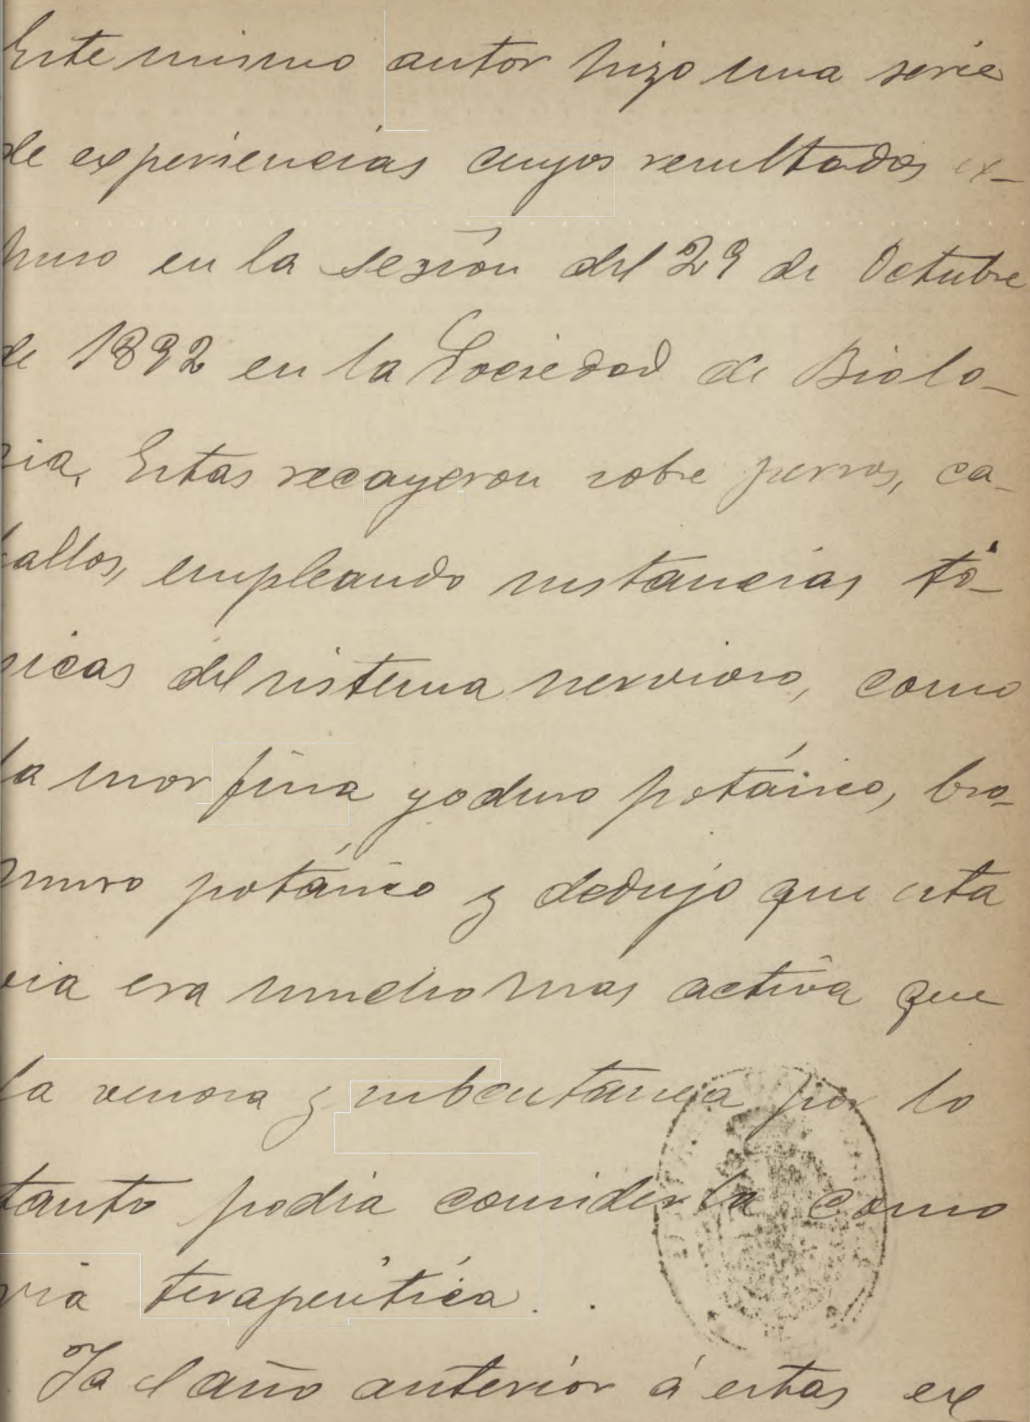 Este mismo autor hizo una serie
de experiencias cuyos resultados ex-
puso en la sesión del 29 de Octubre
de 1892 en la Sociedad de Biolo-
gia. Estas recayeron sobre perros, ca-
ballos, empleando sustancias tó-
nicas del sistema nervioso, como
la morfina yoduro potásico, bro-
muro potásico y dedujo que esta
via era mucho mas activa que
la venosa y subcutanea por lo
tanto podia considerla como
via terapeútica.
Ya el año anterior á estas ex